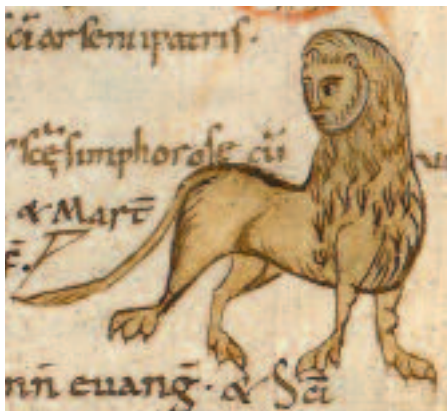 sci arseni patris.
scę simphorose cū
& Mart̄
nn̄ euanḡ. & Scī